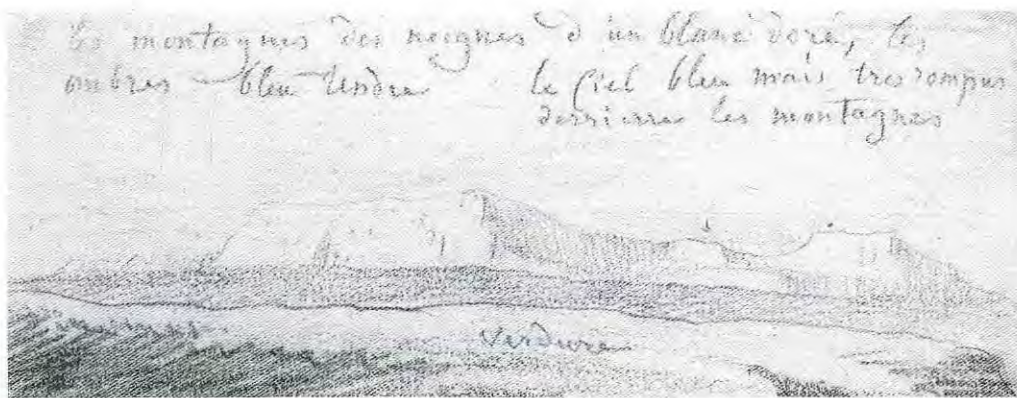 les montagnes des neignes d'un blanc doré, les
ombres bleu tendre le ciel bleu mais tres rompus
derrierre les montagnes
verdure